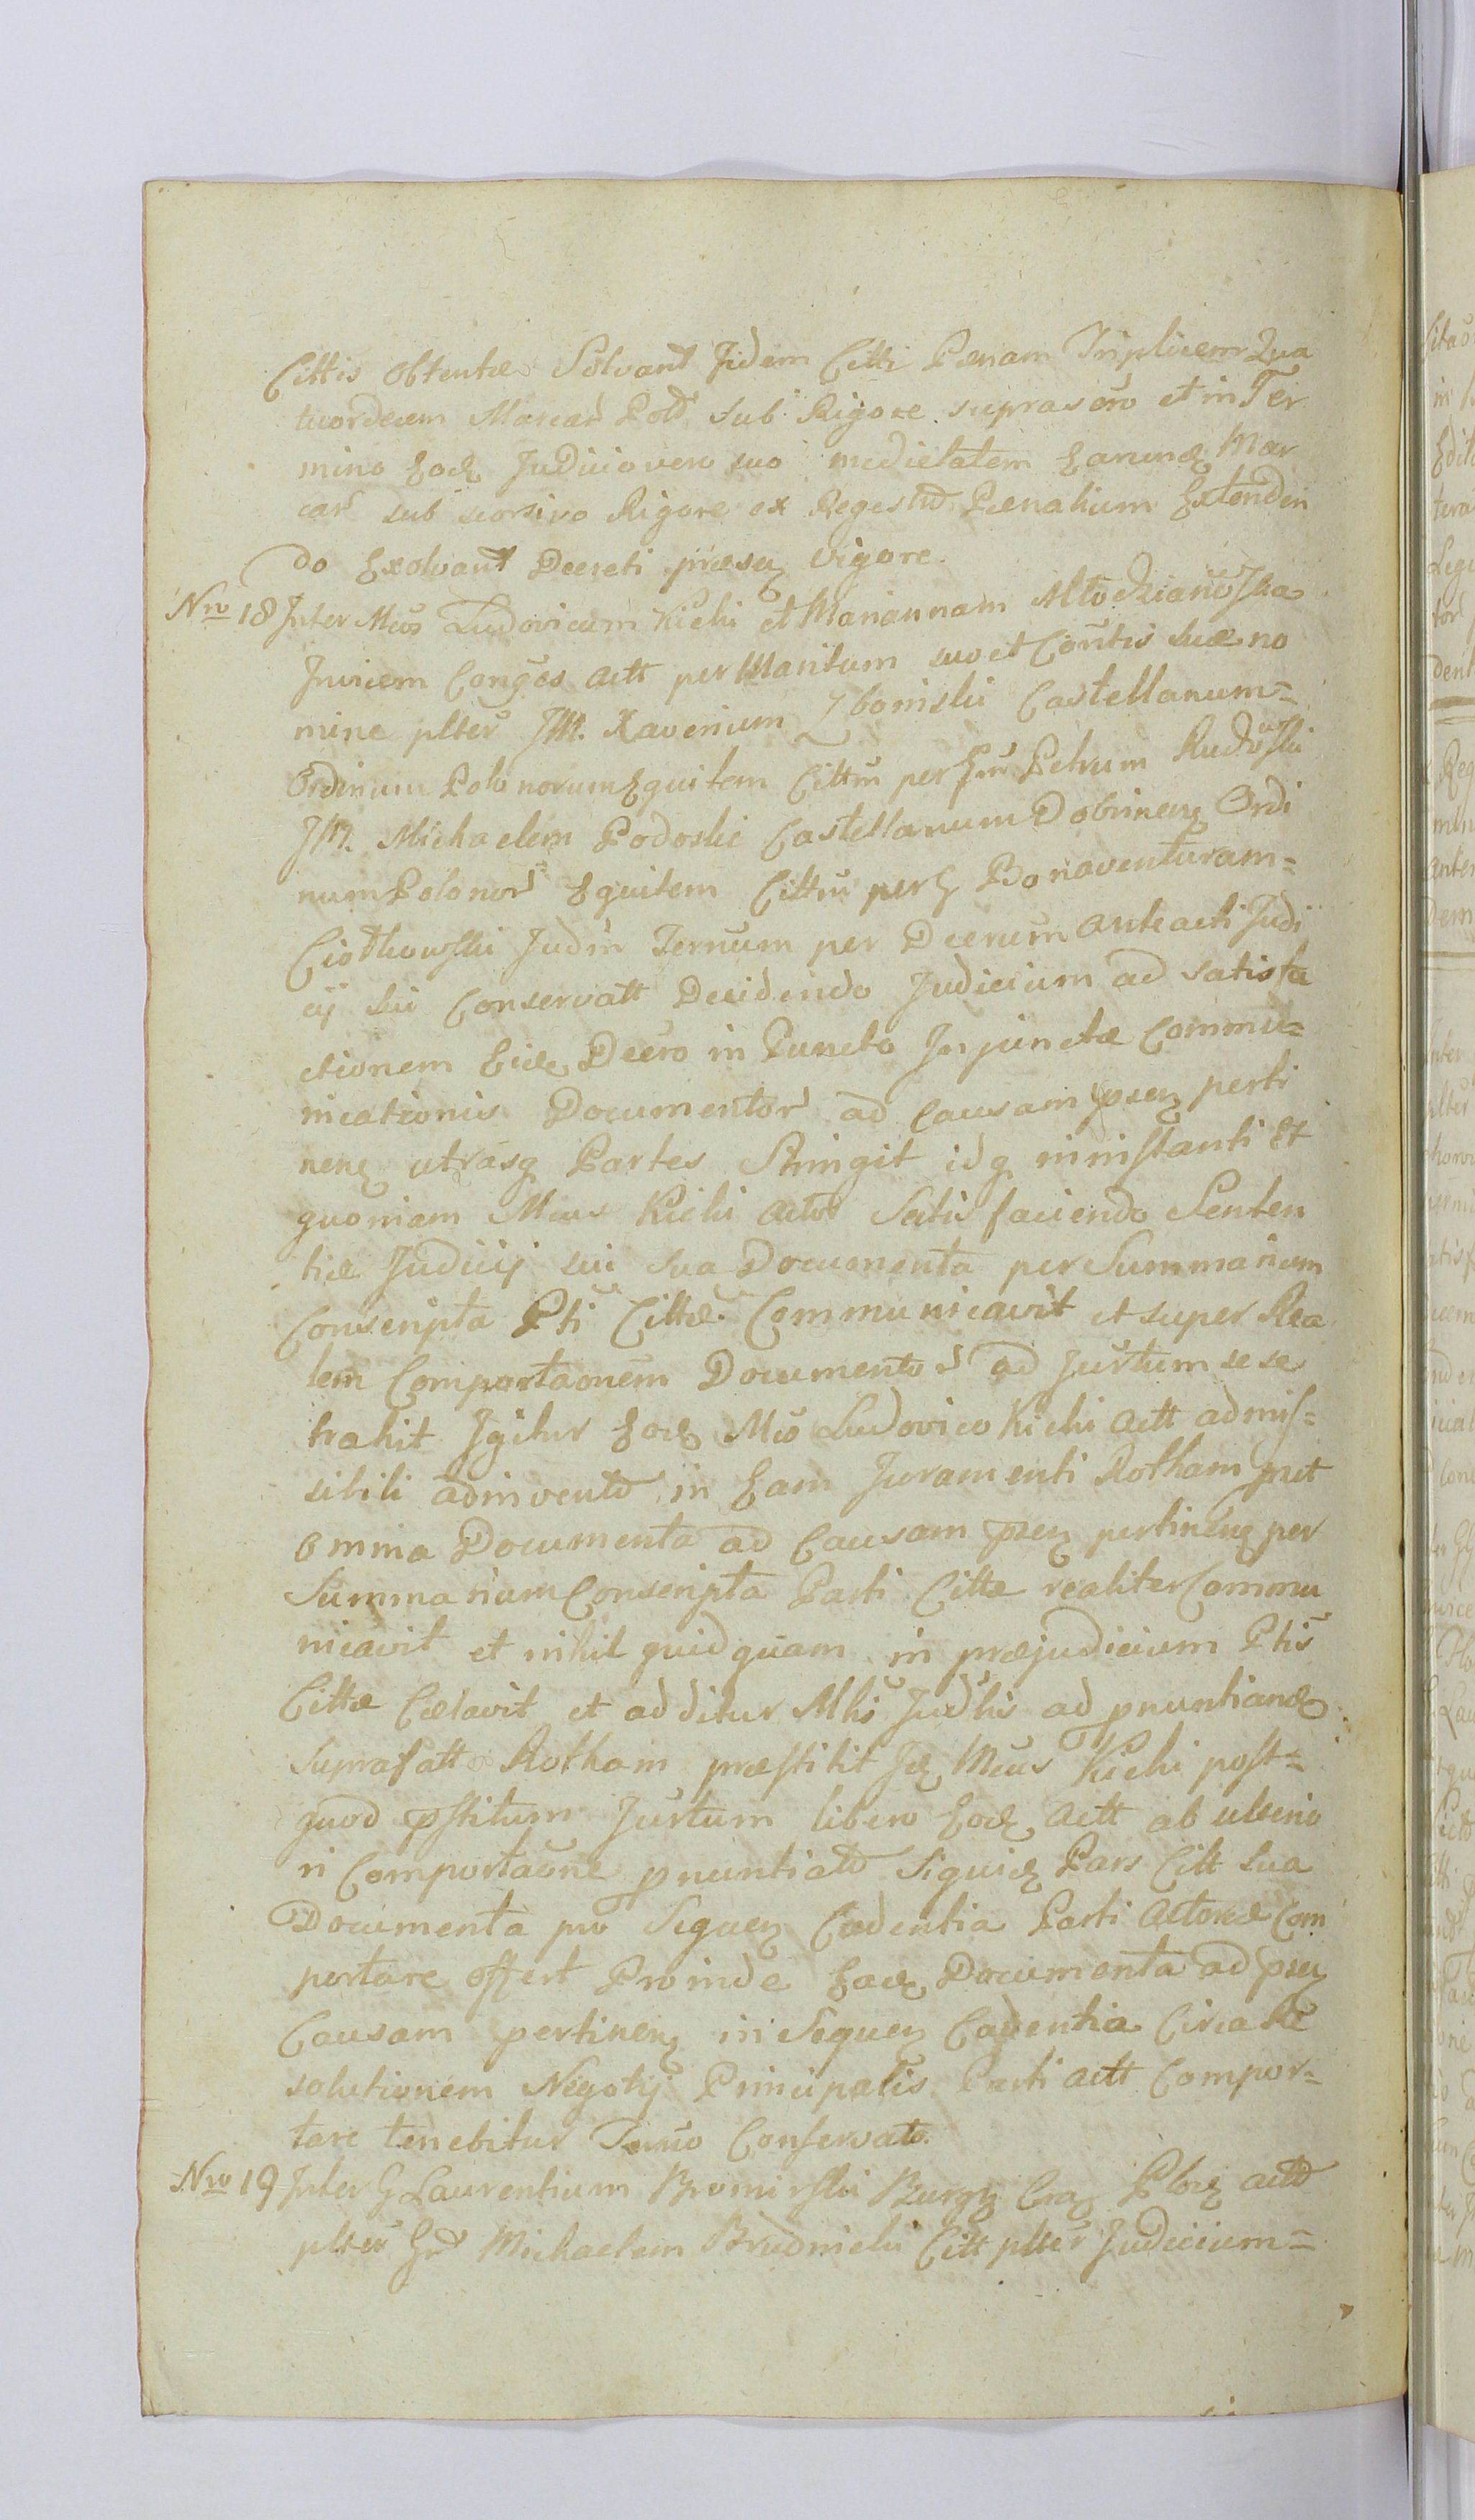 Cittis obtentæ Solvant Iidem Citti Penam Triplicem Qua
tuordecim Marcar Pold sub Rigore supraserõ et in Ter
mino Eodq Judicio vero suo medietatem Earundq Mar
car sub seorsivo Rigore ex Regestrd Pænalium Extenden
do Exolvant Decreti præseq vigore.
Nro 18 Inter Mcos Ludovicum Kicki et Mariannam Młodzianowska
Invicem Conges Actt per Maritum suo et Contis suæ no
mine plter JM. Xaverium Zboinski Castellanum=
Ordinum Polonorum Equitem Cittm per Petrum Rudowski
JM. Michaelem Podoski Castellanum Dobrineng Ordi
num Polonor Equitem Cittm per G Bonaventuram=
Ciotkowski Judm Ternum per Decrum anteacti Judi
cij sui Conservatt Decidendo Judicium ad satisfa
ctionem Eidq Decro in Puncto Injunctæ Commu=
nicationis Documentor ad Causam pseq perti
neng utrasq Partes Stringit idq ininstanti Et
quoniam Mcus Kicki Actor Satisfaciendo Senten
tiæ Judicij sui sua Documenta per Summarium
Conscripta Pti Cittæ Communicavit et super Rea
lem Comportaonem Documentor ad Jurtum sese
trahit Igitur Eodq Mco Ludovico Kicki Actt admis=
sibili adinventd in Eam Juramenti Rotham qnt
omnia Documenta ad Causam pseq pertineng per
Summarium Conscripta Parti Cittæ realiter Commu
nicavit et nihil quidquam in præjudicium Ptis
Cittæ Cælavit et additur Mlis Judlis ad pnuntiandq
suprafatt Rotham præstitit Idq Mcus Kicki post=
quod pstitum Jurtum libero Eodq Actt ab ulterio
ri Comportaone pnuntiatd Siquidq Pars Citt sua
Documenta pro Sequeq Cadentia Parti Actoreæ Com
portare offert Proinde Eadq Documenta ad pseq
Causam pertineng in Sequeq Cadentia Circa Re
solutionem Negotij Principalis Parti Actt Compor=
tare tenebitur Termo Conservato.
Nro 19 Inter G Laurentium Bromirski Burgq Plocq actd
plter Michaelem Brudnicki Citt plter Judicium=